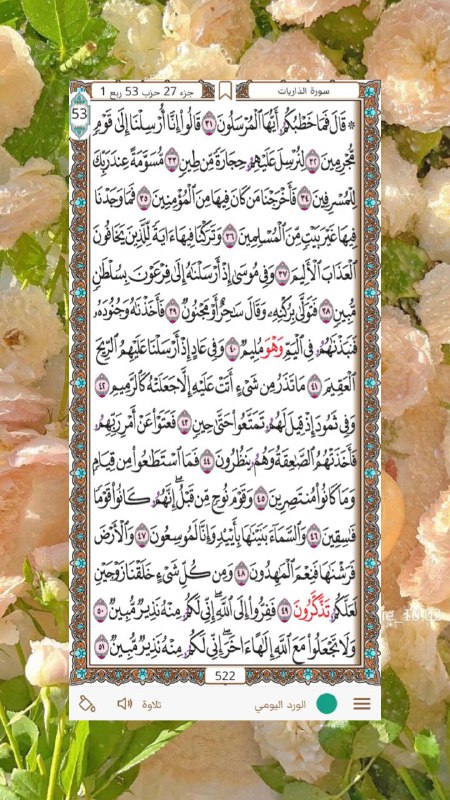 سورة الذاريات
جزء 27 حزب 53 ربع 1
53
۞ قَالَ فَمَا خَطْبُكُمُۥ أَيُّهَا اَلْمُرْسَلُونَ ٣١ قَالُوا إِنَّا أُرْسِلْنَا إِلَىٰ قَوْمٍ
مُّجْرِمِينَ ٣٢ لِنُرْسِلَ عَلَيْهِمُۥ حِجَارَةً مِّن طِينٍ ٣٣ مُّسَوَّمَةً عِندَ رَبِّكَ
لِلْمُسْرِفِينَ ٣٤ فَأَخْرَجْنَا مَن كَانَ فِيهَا مِنَ اَلْمُؤْمِنِينَ ٣٥ فَمَا وَجَدْنَا
فِيهَا غَيْرَ بَيْتٍ مِّنَ اَلْمُسْلِمِينَ ٣٦ وَتَرَكْنَا فِيهَا ءَايَةً لِّلَّذِينَ يَخَافُونَ
اَلْعَذَابَ اَلْأَلِيمَ ٣٧ وَفِي مُوسَىٰ إِذْ أَرْسَلْنَٰهُ إِلَىٰ فِرْعَوْنَ بِسُلْطَٰنٍ
مُّبِينٍ ٣٨ فَتَوَلَّىٰ بِرُكْنِهِۦ وَقَالَ سَٰحِرٌ أَوْ مَجْنُونٌ ٣٩ فَأَخَذْنَٰهُ وَجُنُودَهُۥ
فَنَبَذْنَٰهُمُۥ فِي اِلْيَمِّ وَهْوَ مُلِيمٌ ٤٠ وَفِي عَادٍ إِذْ أَرْسَلْنَا عَلَيْهِمُ اُلرِّيحَ
اَلْعَقِيمَ ٤١ مَا تَذَرُ مِن شَيْءٍ أَتَتْ عَلَيْهِ إِلَّا جَعَلَتْهُ كَالرَّمِيمِ ٤٢
وَفِي ثَمُودَ إِذْ قِيلَ لَهُمُۥ تَمَتَّعُوا حَتَّىٰ حِينٍ ٤٣ فَعَتَوْا عَنْ أَمْرِ رَبِّهِمُۥ
فَأَخَذَتْهُمُ اُلصَّٰعِقَةُ وَهُمُۥ يَنظُرُونَ ٤٤ فَمَا اَسْتَطَٰعُوا مِن قِيَامٍ
وَمَا كَانُوا مُنتَصِرِينَ ٤٥ وَقَوْمَ نُوحٍ مِّن قَبْلُ إِنَّهُمُۥ كَانُوا قَوْمًا
فَٰسِقِينَ ٤٦ وَالسَّمَآءَ بَنَيْنَٰهَا بِأَيْيْدٍ وَإِنَّا لَمُوسِعُونَ ٤٧ وَالْأَرْضَ
فَرَشْنَٰهَا فَنِعْمَ اَلْمَٰهِدُونَ ٤٨ وَمِن كُلِّ شَيْءٍ خَلَقْنَا زَوْجَيْنِ
لَعَلَّكُمُۥ تَذَّكَّرُونَ ٤٩ فَفِرُّوا إِلَى اَللَّهِ إِنِّي لَكُمُۥ مِنْهُ نَذِيرٌ مُّبِينٌ ٥٠
وَلَا تَجْعَلُوا مَعَ اَللَّهِ إِلَٰهًا ءَاخَرَ إِنِّي لَكُمُۥ مِنْهُ نَذِيرٌ مُّبِينٌ ٥١
522
الورد اليومي
تلاوة